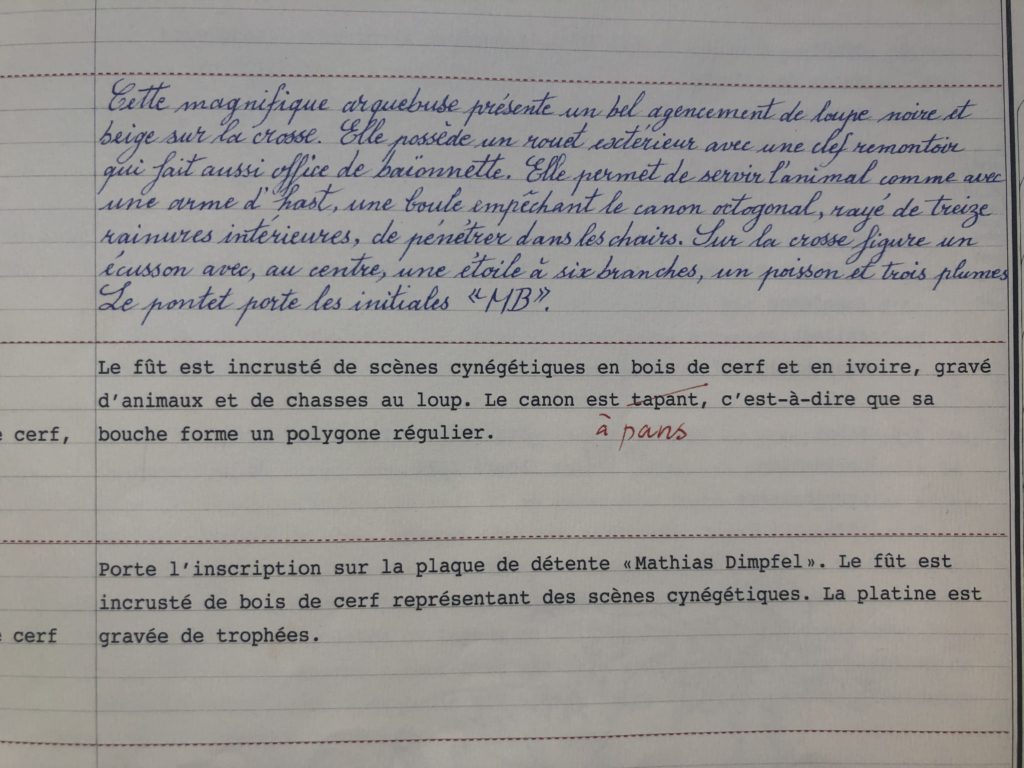 Cette magnifique arquebuse présente un bel agencement de loupe noire et
beige sur la crosse. Elle possède un rouet extérieur avec une clef remontoir
qui fait aussi office de baïonnette. Elle permet de servir l'animal comme avec
une arme d'hast, une boule empêchant le canon octogonal, rayé de treize
rainures intérieures, de pénétrer dans les chairs. Sur la crosse figure un
écusson avec, au centre, une étoile à six branches, un poisson et trois plumes
Le pontet porte les initiales «MB».
Le fût est incrusté de scènes cynégétiques en bois de cerf et en ivoire, gravé
d'animaux et de chasses au loup. Le canon est tapant, c'est-à-dire que sa
cerf, bouche forme un polygone régulier. à pans
Porte l'inscription sur la plaque de détente «Mathias Dimpfel». Le fût est
incrusté de bois de cerf représentant des scènes cynégétiques. La platine est
cerf gravée de trophées.